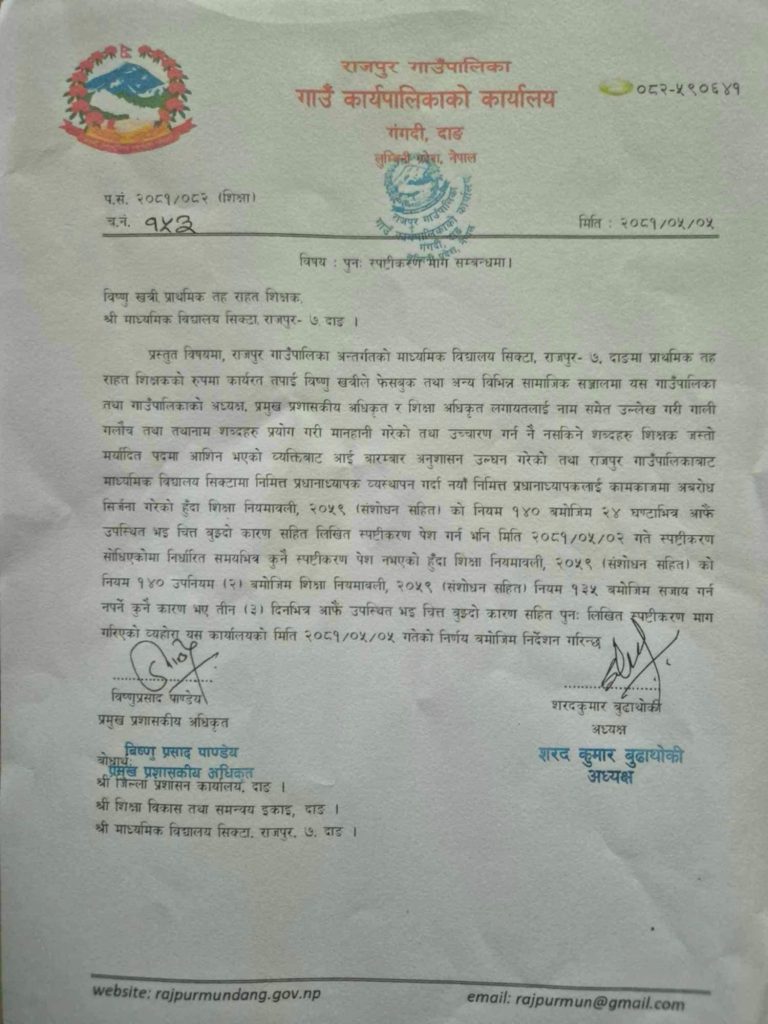 राजपुर गाउँपालिका
गाउँ कार्यपालिकाको कार्यालय
०८२-५९०६४१
गंगदी, दाङ
लुम्बिनी प्रदेश, नेपाल
राजपुर गाउँपालिका
गाउँ कार्यपालिकाको कार्यालय
गंगदी, दाङ
लुम्बिनी प्रदेश, नेपाल
प.सं. २०८१/०८२ (शिक्षा)
च.नं. १५३
मिति : २०८१/०५/०५
विषय : पुनः स्पष्टीकरण माग सम्बन्धमा।
विष्णु खत्री, प्राथमिक तह राहत शिक्षक,
श्री माध्यमिक विद्यालय सिक्टा, राजपुर- ७, दाङ ।
प्रस्तुत विषयमा, राजपुर गाउँपालिका अन्तर्गतको माध्यमिक विद्यालय सिक्टा, राजपुर- ७, दाङमा प्राथमिक तह
राहत शिक्षकको रुपमा कार्यरत तपाई विष्णु खत्रीले फेसबुक तथा अन्य विभिन्न सामाजिक सञ्जालमा यस गाउँपालिका
तथा गाउँपालिकाको अध्यक्ष, प्रमुख प्रशासकीय अधिकृत र शिक्षा अधिकृत लगायतलाई नाम समेत उल्लेख गरी गाली
गलौच तथा तथानाम शब्दहरु प्रयोग गरी मानहानी गरेको तथा उच्चारण गर्न नै नसकिने शब्दहरु शिक्षक जस्तो
मर्यादित पदमा आशिन भएको व्यक्तिबाट आई बारम्बार अनुशासन उल्घन गरेको तथा राजपुर गाउँपालिकाबाट
माध्यमिक विद्यालय सिक्टामा निमित्त प्रधानाध्यापक व्यस्थापन गर्दा नयाँ निमित्त प्रधानाध्यापकलाई कामकाजमा अबरोध
सिर्जना गरेको हुँदा शिक्षा नियमावली, २०५९ (संशोधन सहित) को नियम १४० बमोजिम २४ घण्टाभित्र आफै
उपस्थित भइ चित्त बुझ्दो कारण सहित लिखित स्पष्टीकरण पेश गर्न भनि मिति २०८१/०५/०२ गते स्पष्टीकरण
सोधिएकोमा निर्धारित समयभित्र कुनै स्पष्टीकरण पेश नभएको हुँदा शिक्षा नियमावली, २०५९ (संशोधन सहित) को
नियम १४० उपनियम (२) बमोजिम शिक्षा नियमावली, २०५९ (संशोधन सहित) नियम १३५ बमोजम सजाय गर्न
नपर्ने कुनै कारण भए तीन (३) दिनभित्र आफै उपस्थित भइ चित्त बुझ्दो कारण सहित पुनः लिखित स्पष्टीकरण माग
गरिएको व्यहोरा यस कार्यालयको मिति २०८१/०५/०५ गतेको निर्णय बमोजिम निर्देशन गरिन्छ
विष्णुप्रसाद पाण्डेय
प्रमुख प्रशासकीय अधिकृत
बिष्णु प्रसाद पाण्डेय
प्रमुख प्रशासकीय अधिकृत
शरदकुमार बुढाथोकी
अध्यक्ष
शरद कुमार बुढाथोकी
अध्यक्ष
बोधार्थः
श्री जिल्ला प्रशासन कार्यालय, दाङ ।
श्री शिक्षा विकास तथा समन्वय इकाइ, दाङ ।
श्री माध्यमिक विद्यालय सिक्टा, राजपुर, ७, दाङ ।
website: rajpurmundang.gov.np
email: rajpurmun@gmail.com